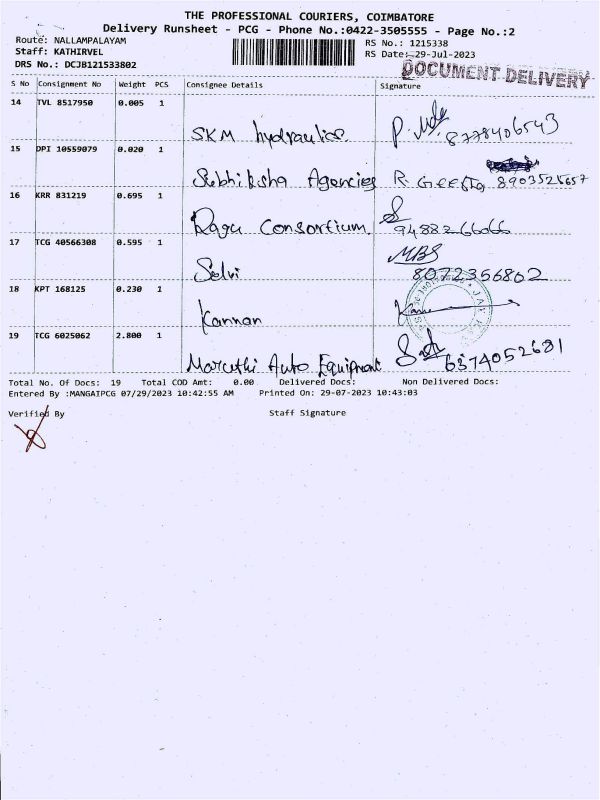 THE PROFESSIONAL COURIERS, COIMBATORE
Delivery Runsheet - PCG - Phone No.:0422-3505555 - Page No.:2
Route: NALLAMPALAYAM
RS No.: 1215338
Staff: KATHIRVEL
RS Date: 29-Jul-2023
DRS No.: DCJB121533802
DOCUMENT DELIVERY
S No Consignment No Weight PCS Consignee Details Signature
14 TVL 8517950 0.005 1
SKM hydraulics 8778406543
15 DPI 10559079 0.020 1
Subhiksha Agencies R Geetha 8903525657
16 KRR 831219 0.695 1
Ragu Consortium. 9488266066
17 TCG 40566308 0.595 1
MBS
Selvi 8072356802
18 KPT 168125 0.230 1
Kannan
19 TCG 6025062 2.800 1
Maruthi Auto Equipment 6374052681
Total No. Of Docs: 19 Total COD Amt: 0.00 Delivered Docs: Non Delivered Docs:
Entered By :MANGAIPCG 07/29/2023 10:42:55 AM Printed On: 29-07-2023 10:43:03
Verified By Staff Signature